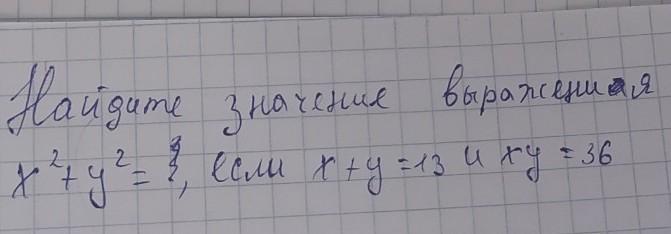 Найдите значение выражения
x²+y²=?, если x+y=13 и xy=36